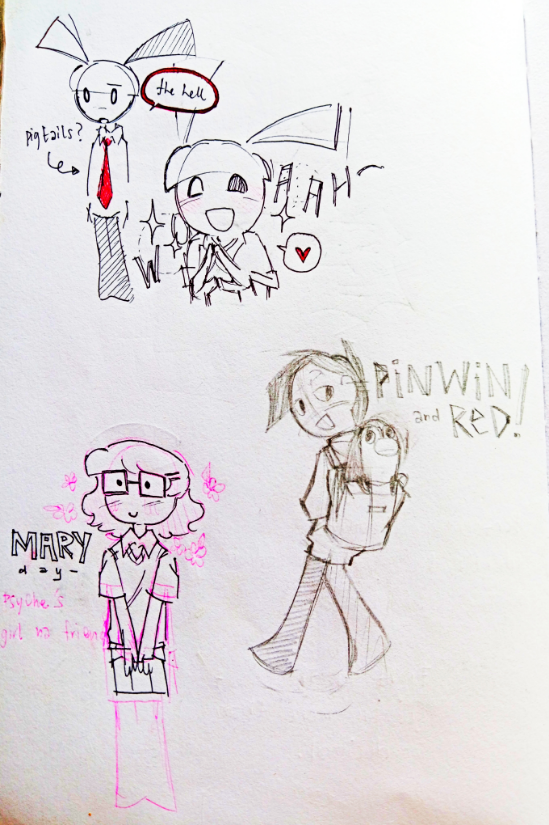 the hell
pigtails?
WOAAH
PiNWiN
and RED!
MARY
day-
Psyche's
girl no friend